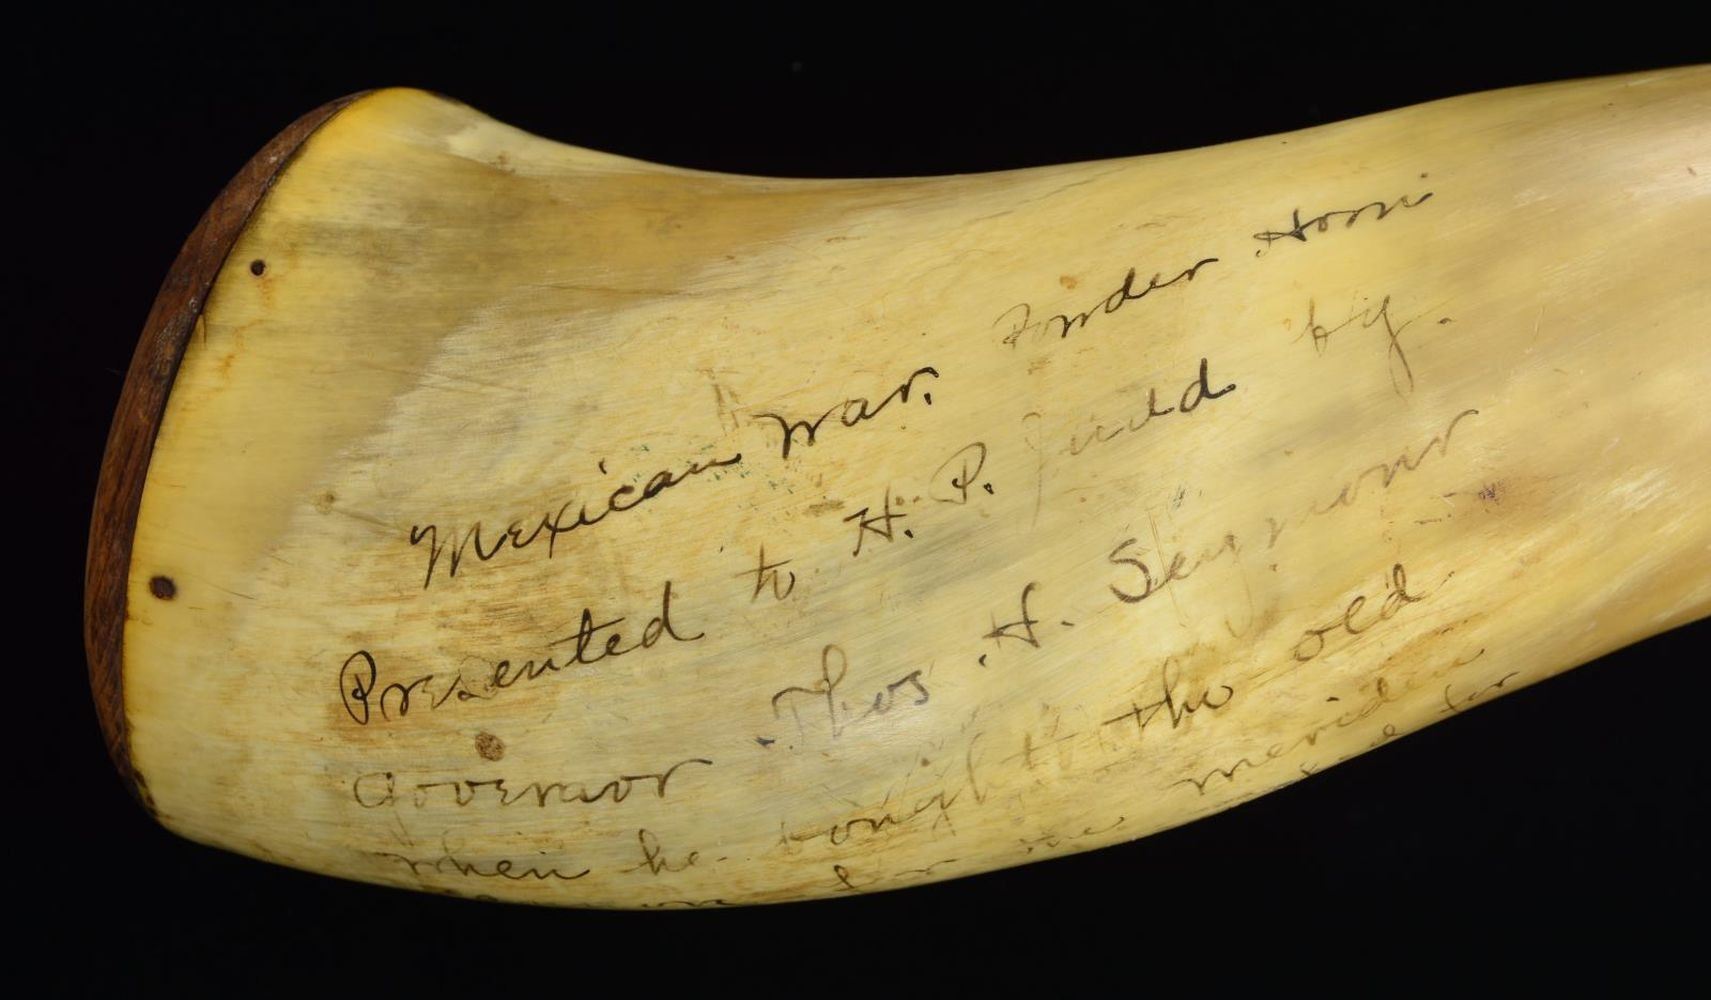 Mexican War. Powder Horn
Presented to H. P. Judd by.
Governor Thos. H. Seymour
when he bought the old
for the meriden
for